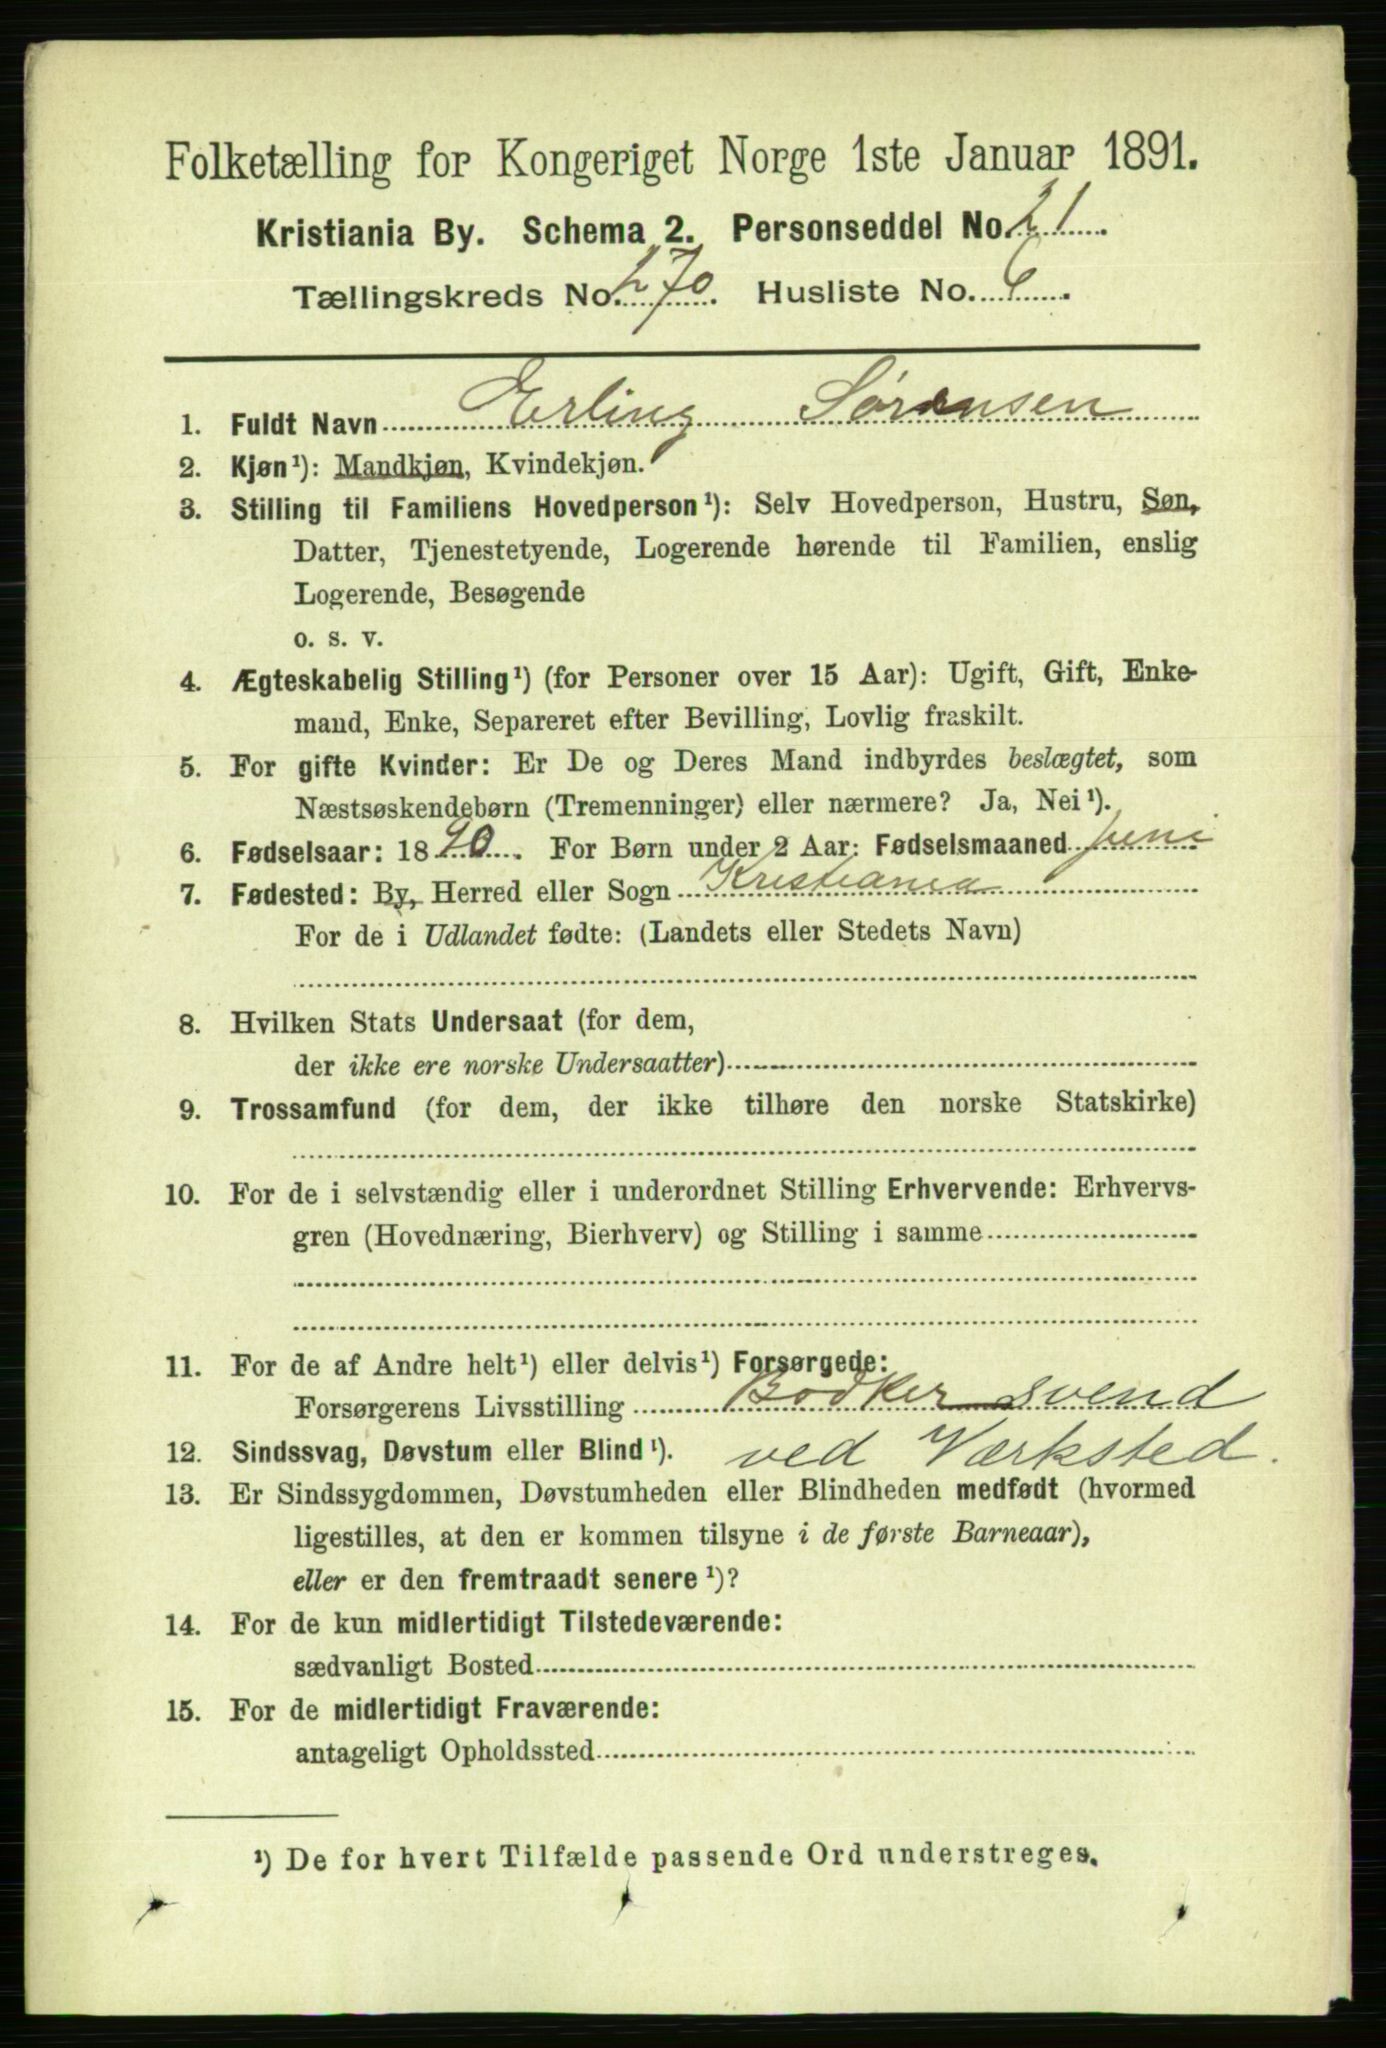 Folketælling for Kongeriget Norge 1ste Januar 1891.
Kristiania By. Schema 2. Personseddel No. 21.
Tællingskreds No. 270. Husliste No. 6.
1. Fuldt Navn Erling Sørensen
2. Kjøn¹): Mandkjøn, Kvindekjøn.
3. Stilling til Familiens Hovedperson¹): Selv Hovedperson, Hustru, Søn,
Datter, Tjenestetyende, Logerende hørende til Familien, enslig
Logerende, Besøgende
o. s. v.
4. Ægteskabelig Stilling¹) (for Personer over 15 Aar): Ugift, Gift, Enke-
mand, Enke, Separeret efter Bevilling, Lovlig fraskilt.
5. For gifte Kvinder: Er De og Deres Mand indbyrdes beslægtet, som
Næstsøskendebørn (Tremenninger) eller nærmere? Ja, Nei¹).
6. Fødselsaar: 1890. For Børn under 2 Aar: Fødselsmaaned Juni
7. Fødested: By, Herred eller Sogn Kristiania
For de i Udlandet fødte: (Landets eller Stedets Navn)
8. Hvilken Stats Undersaat (for dem,
der ikke ere norske Undersaatter)
9. Trossamfund (for dem, der ikke tilhøre den norske Statskirke)
10. For de i selvstændig eller i underordnet Stilling Erhvervende: Erhvervs-
gren (Hovednæring, Bierhverv) og Stilling i samme
11. For de af Andre helt¹) eller delvis¹) Forsørgede:
Forsørgerens Livsstilling Bødker svend
12. Sindssvag, Døvstum eller Blind¹). ved Værksted.
13. Er Sindssygdommen, Døvstumheden eller Blindheden medfødt (hvormed
ligestilles, at den er kommen tilsyne i de første Barneaar),
eller er den fremtraadt senere¹)?
14. For de kun midlertidigt Tilstedeværende:
sædvanligt Bosted
15. For de midlertidigt Fraværende:
antageligt Opholdssted
¹) De for hvert Tilfælde passende Ord understreges.